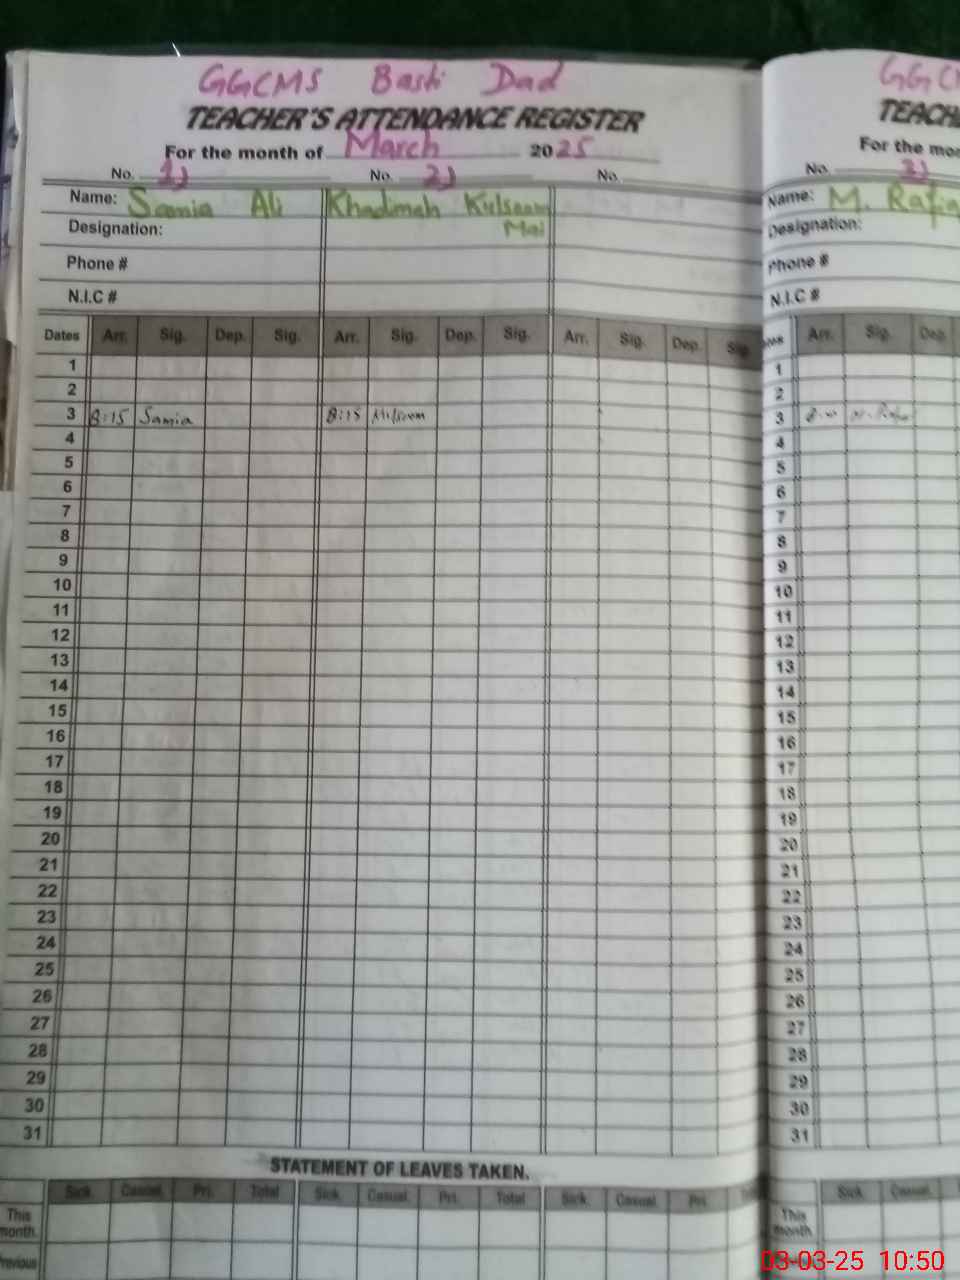 GGCMS Basti Dad
TEACHER'S ATTENDANCE REGISTER
For the month of March 2025
No. 1) No. 2) No.
Name: Samia Ali Khadimah Kulsoom
Designation: Mai
Phone #
N.I.C #
Dates Arr. Sig. Dep. Sig. Arr. Sig. Dep. Sig. Arr. Sig. Dep. Sig.
1
2
3 8:15 Samia 8:15 Kulsoom
4
5
6
7
8
9
10
11
12
13
14
15
16
17
18
19
20
21
22
23
24
25
26
27
28
29
30
31
STATEMENT OF LEAVES TAKEN.
Sick. Casual. Pri. Total Sick. Casual. Pri. Total Sick. Casual. Pri.
This
month.
Previous
GGC
TEACH
For the mo
No. 3)
Name: M. Rafia
Designation:
Phone #
N.I.C #
Arr. Sig. Dep.
1
2
3
4
5
6
7
8
9
10
11
12
13
14
15
16
17
18
19
20
21
22
23
24
25
26
27
28
29
30
31
Sick. Casual.
This
month.
03-03-25 10:50